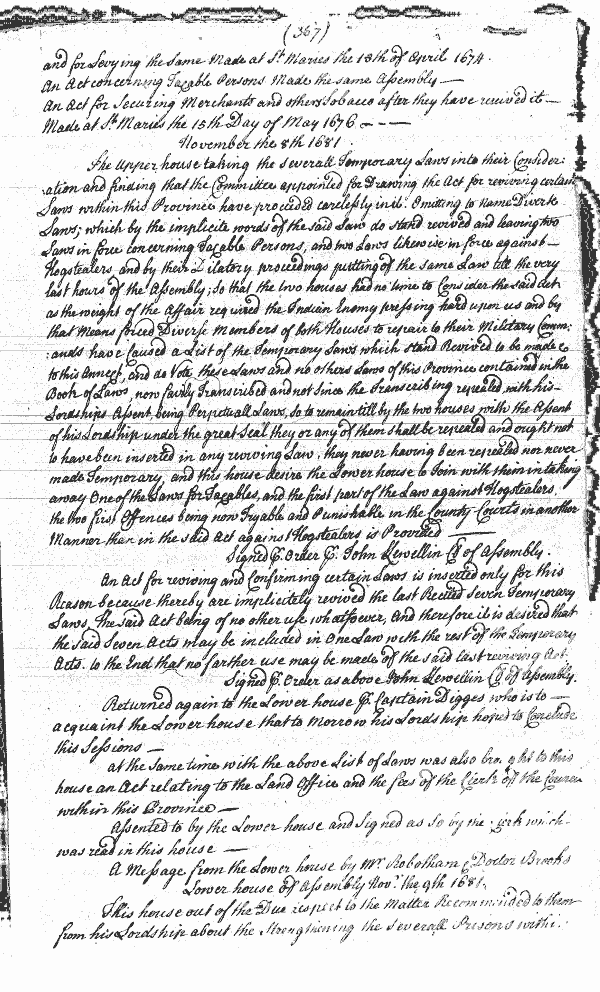 (367)
and for Levying the Same Made at St Maries the 18th of April 1674.
An Act concerning Taxable Persons Made the same Assembly —
An Act for Securing Merchants and others Tobacco after they have received it —
Made at St Maries the 15th Day of May 1676 – – –
November the 8th 1681
The Upper house taking the severall Temporary Laws into their Consider:
:ation and finding that the Committee appointed for Drawing the Act for reviving certain
Laws within this Province have proceded carelessly in it: Omitting to name Diverse
Laws; which by the implicite words of the said Law do stand revived and leaving two
Laws in force concerning Taxable Persons, and two Laws likewise in force against —
Hogstealers, and by their Dilatory proceedings putting of the same Law till the very
last hours of the Assembly; so that the two houses had no time to Consider the said Act
as the weight of the Affair required the Indian Enemy pressing hard upon us and by
that Means forced Diverse Members of both Houses to repair to their Military Comm:
:ands have Caused a List of the Temporary Laws which stand Revived to be made &
to this Annext, and do Vote these Laws and no others Laws of this Province contained in the
Book of Laws, now fairly Transcribed and not since the Transcribing repealed with his —
Lordships Assent, being Perpetuall Laws, so to remain till by the two houses with the Assent
of his Lordship under the great Seal they or any of them shall be repealed and ought not
to have been inserted in any reviving Law, they never having been repealed nor never
made Temporary, and this house desire the Lower house to Join with them in taking
away One of the Laws for Taxables, and the first part of the Law against Hogstealers,
the two first Offences being now Tryable and Punishable in the County Courts in another
Manner than in the said Act against Hogstealers is Provided —
Signed P. Order P. John Llewellin Cl of Assembly.
An Act for reviving and Confirming certain Laws is inserted only for this
Reason because thereby are implicitely revived the last Recited Seven Temporary
Laws. The said Act being of no other use whatsoever, And therefore it is desired that
the said Seven Acts may be included in One Law with the rest of the Temporary
Acts. to the End that no farther use may be made of the said last reviving Act.
Signed P. Order as above John Llewellin Cl of Assembly.
Returned again to the Lower house P. Captain Digges who is to —
acquaint the Lower house that to Morrow his Lordship hoped to Conclude
this Sessions —
at the same time with the above List of Laws was also bro ght to this
house an Act relating to the Land Office and the fees of the Clerk of the
within this Province —
Assented to by the Lower house and Signed as so by the which
was read in this house —
A Message from the Lower house by Mr Robotham & Doctor Brooks
Lower house of Assembly Novr. the 9th 1681.
This house out of the Due respect to the Matter Recommended to them
from his Lordship about the Strengthening the severall Prisons withi